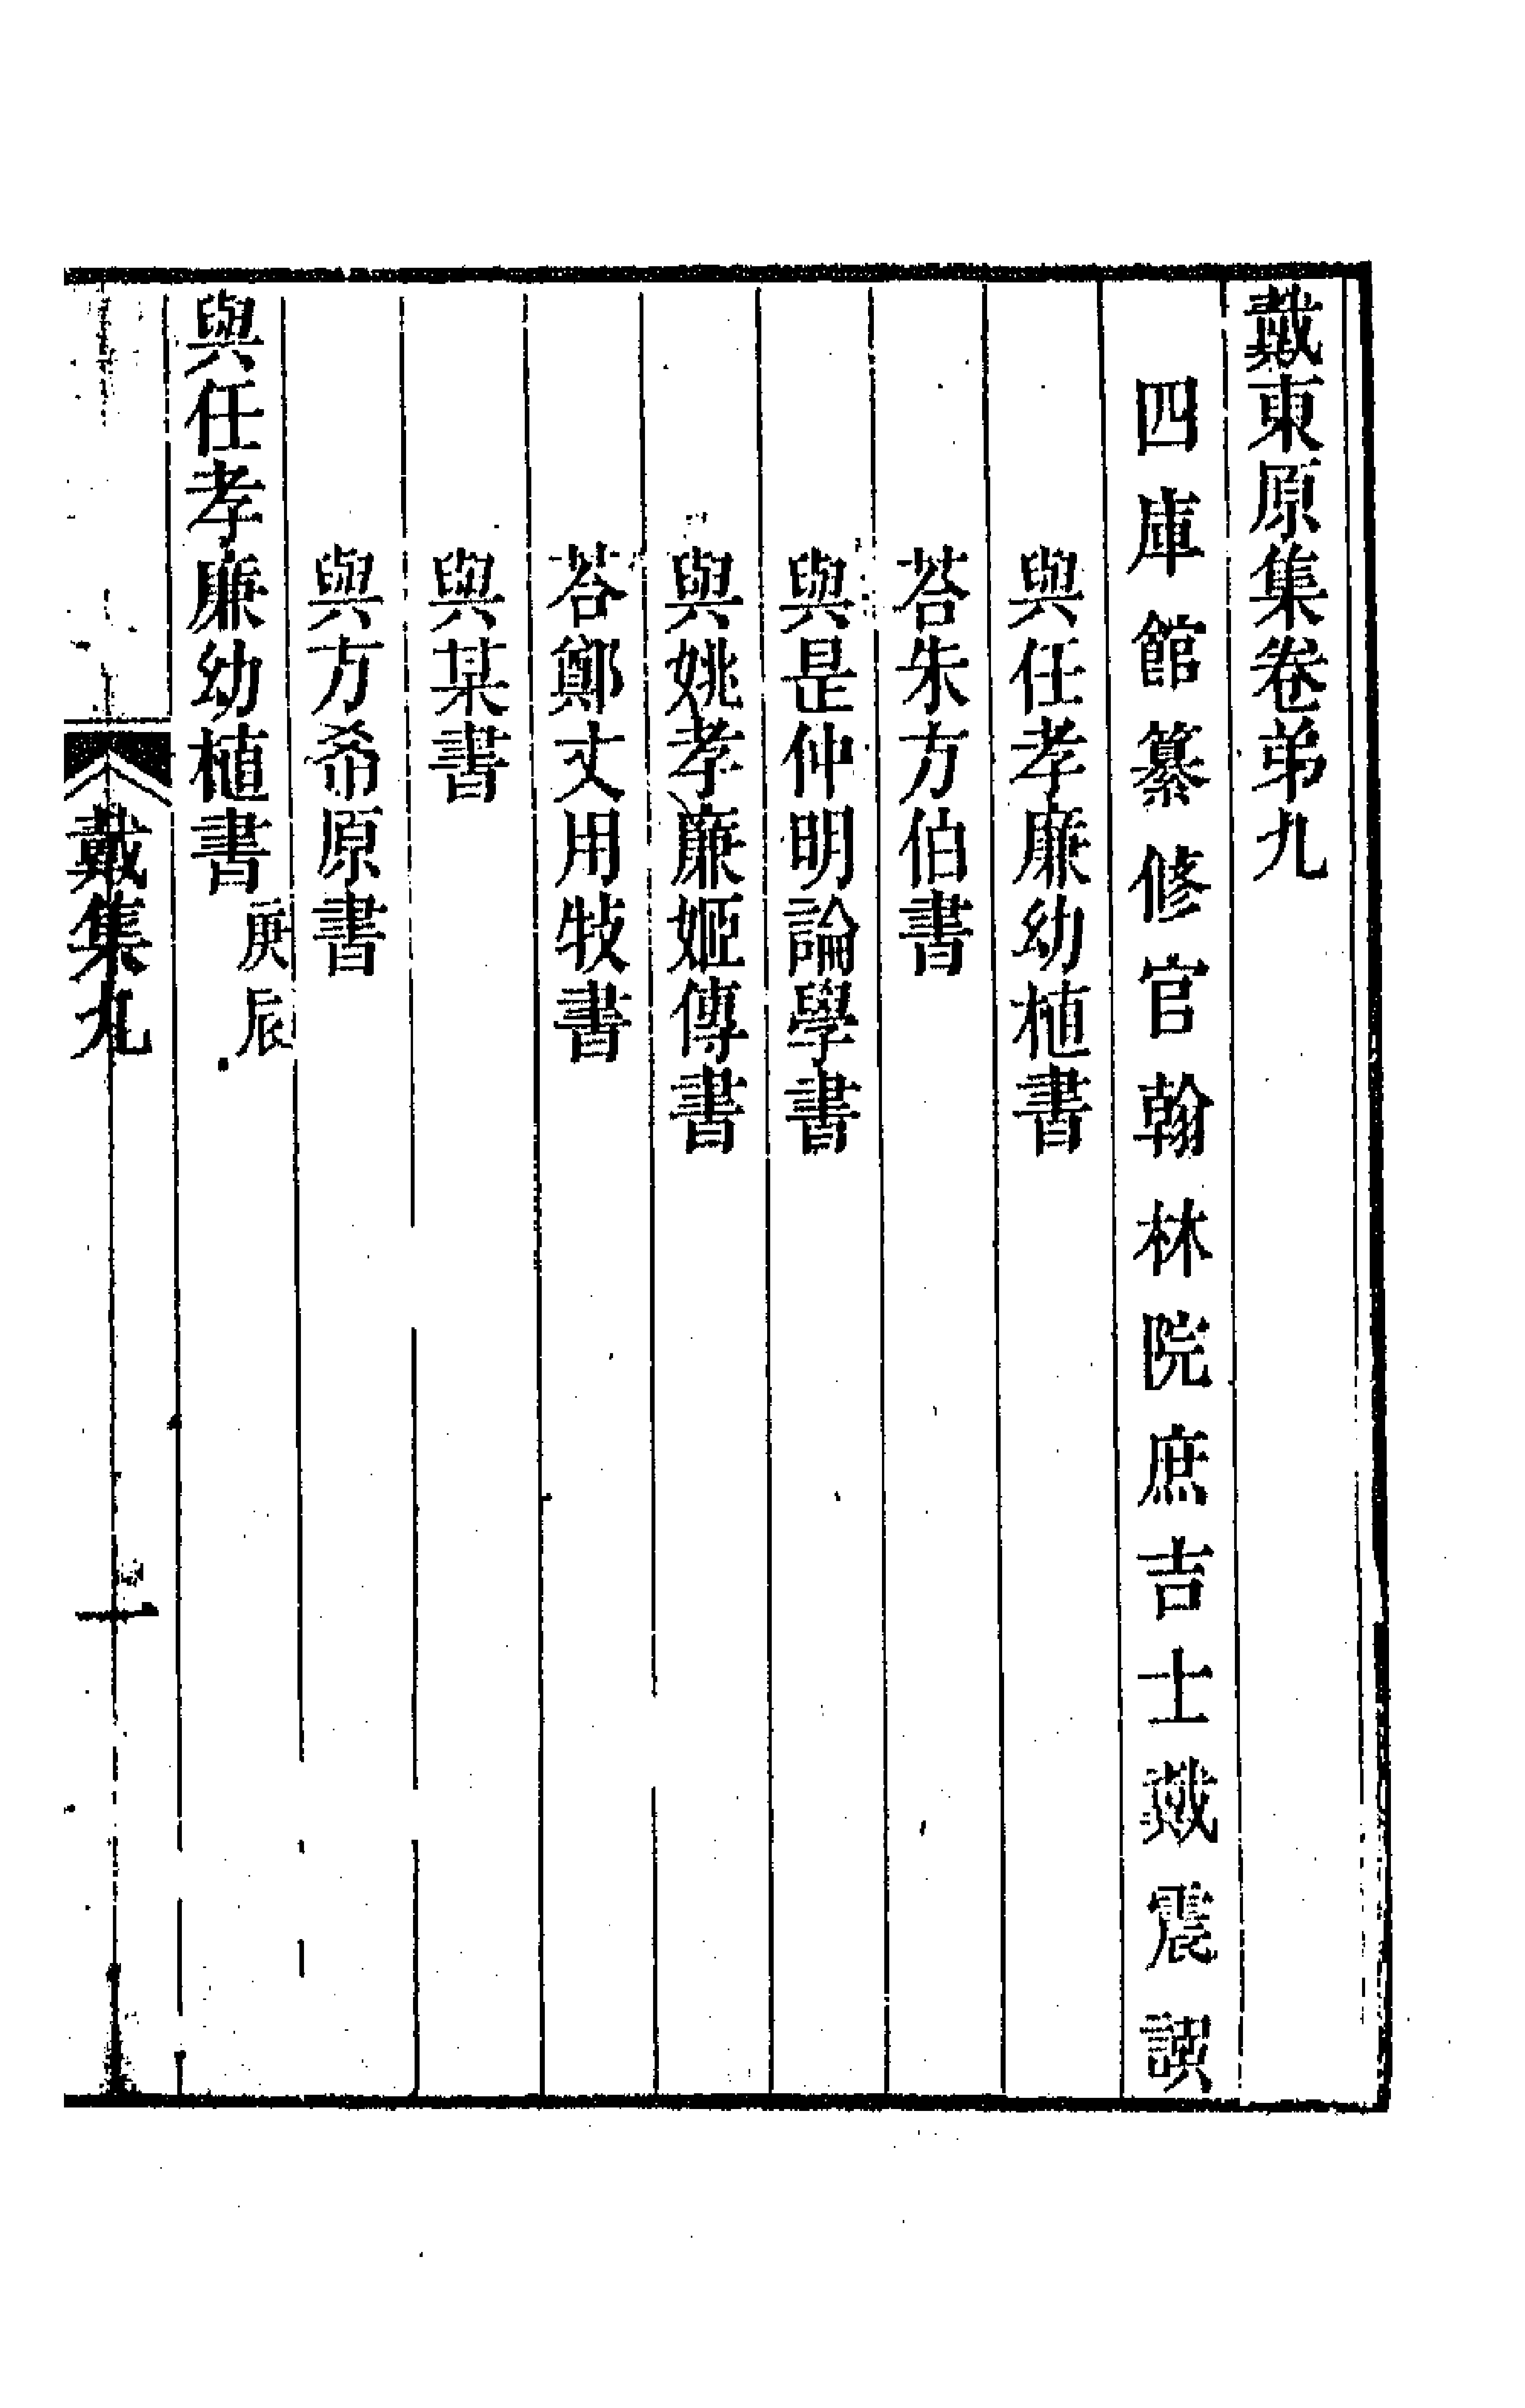 戴東原集卷弟九
四庫館纂修官翰林院庶吉士戴震譔
與任孝廉幼植書
荅朱方伯書
與是仲明論學書
與姚孝廉姬傳書
荅鄭丈用牧書
與某書
與方希原書
與任孝廉幼植書 庚辰
戴集九
一